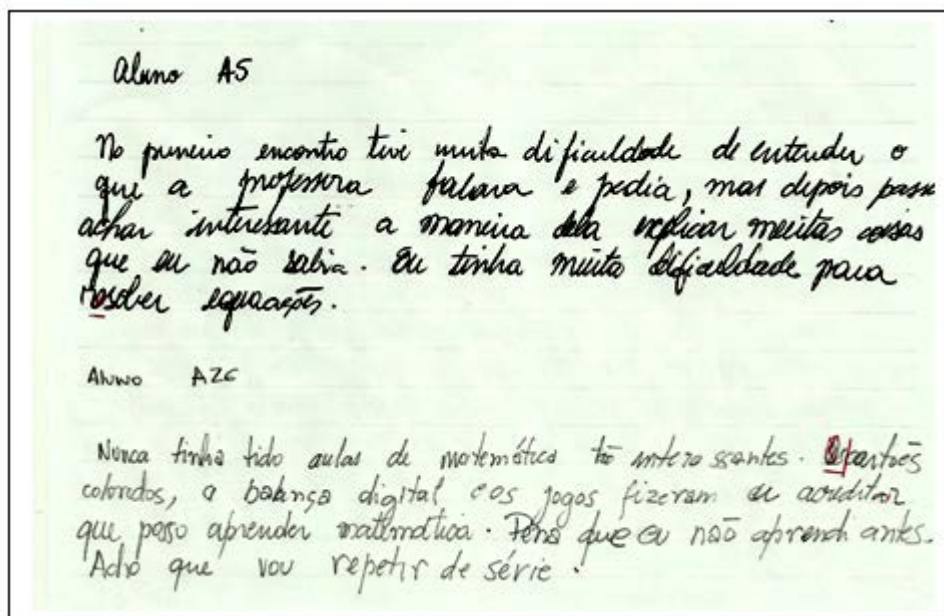 Aluno A5
No primeiro encontro tive muita dificuldade de entender o
que a professora falava e pedia, mas depois passe
achar interesante a maneira dela explicar muitas coisas
que eu não sabia. Eu tinha muita dificuldade para
resolver equações.
Aluno A26
Nunca tinha tido aulas de matemática tão interessantes. Os cartões
coloridos, a balança digital e os jogos fizeram eu acreditar
que posso aprender matemática. Pena que eu não aprendi antes.
Acho que vou repetir de série.